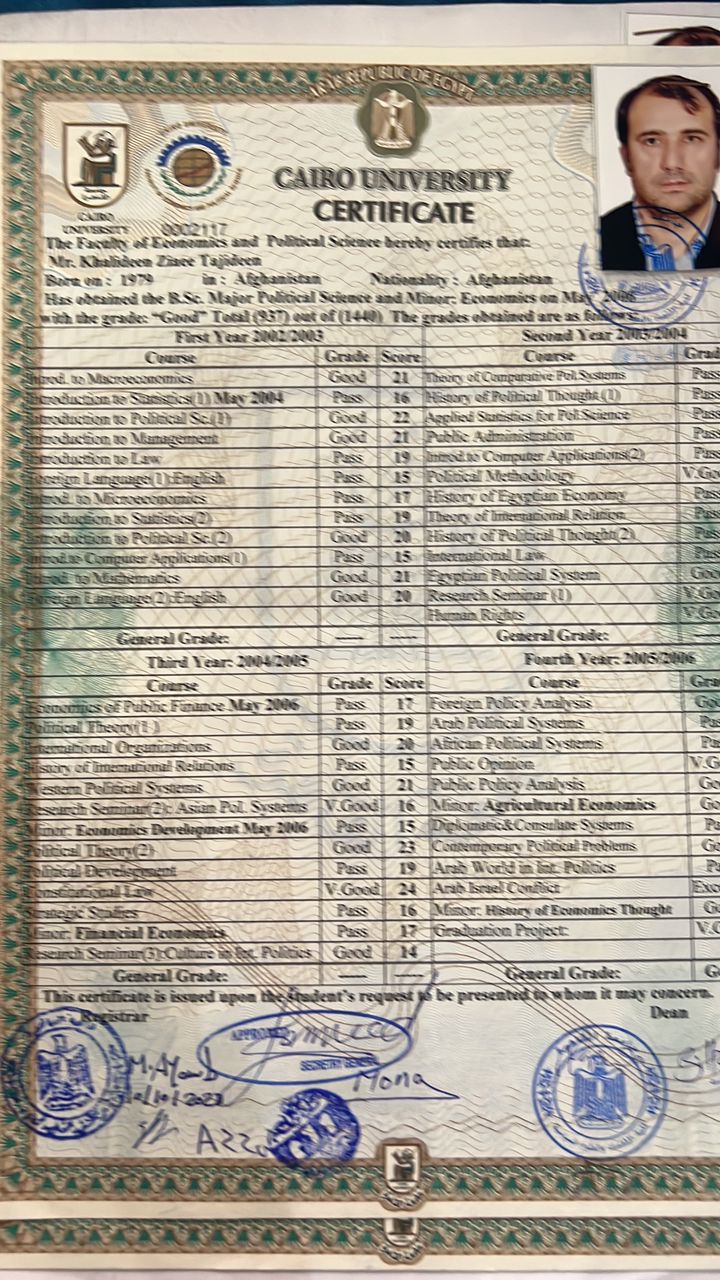 ARAB REPUBLIC OF EGYPT
CAIRO UNIVERSITY
CERTIFICATE
CAIRO
UNIVERSITY 0002117
The Faculty of Economics and Political Science hereby certifies that:
Mr. Khalideen Ziaee Tajideen
Born on : 1979 in : Afghanistan Nationality : Afghanistan
Has obtained the B.Sc. Major Political Science and Minor: Economics on May 2006
with the grade: "Good" Total (937) out of (1440) The grades obtained are as follows:
First Year 2002/2003 Second Year 2003/2004
Course Grade Score Course Grad
Introd. to Macroeconomics Good 21 Theory of Comparative Pol.Systems Pass
Introduction to Statistics(1) May 2004 Pass 16 History of Political Thought (1) Pass
Introduction to Political Sc.(1) Good 22 Applied Statistics for Pol.Science Pass
Introduction to Management Good 21 Public Administration Pass
Introduction to Law Pass 19 Introd.to Computer Applications(2) Pass
Foreign Language(1):English Pass 15 Political Methodology V.Go
Introd. to Microeconomics Pass 17 History of Egyptian Economy Pass
Introduction to Statistics(2) Pass 19 Theory of International Relation Pass
Introduction to Political Sc.(2) Good 20 History of Political Thought(2) Pass
Introd.to Computer Applications(1) Pass 15 International Law Pass
Introd. to Mathematics Good 21 Egyptian Political System Goo
Foreign Language(2):English Good 20 Research Seminar (1) V.Go
Human Rights V.Go
General Grade: ---- ---- General Grade:
Third Year: 2004/2005 Fourth Year: 2005/2006
Course Grade Score Course Gra
Economics of Public Finance May 2006 Pass 17 Foreign Policy Analysis Go
Political Theory(1 ) Pass 19 Arab Political Systems Pa
International Organizations Good 20 African Political Systems Pa
History of International Relations Pass 15 Public Opinion V.G
Western Political Systems Good 21 Public Policy Analysis Go
Research Seminar(2): Asian Pol. Systems V.Good 16 Minor: Agricultural Economics Go
Minor: Economics Development May 2006 Pass 15 Diplomatic&Consulate Systems Pa
Political Theory(2) Good 23 Contemporary Political Problems Go
Political Development Pass 19 Arab World in Int. Politics Pa
Constitutional Law V.Good 24 Arab Israel Conflict Exc
Strategic Studies Pass 16 Minor: History of Economics Thought Go
Minor: Financial Economics Pass 17 Graduation Project: V.G
Research Seminar(3):Culture in Int. Politics Good 14
General Grade: ---- ---- General Grade: G
This certificate is issued upon the student's request to be presented to whom it may concern.
Registrar Dean
APPROVED
SECRETARY GENERAL
Mona